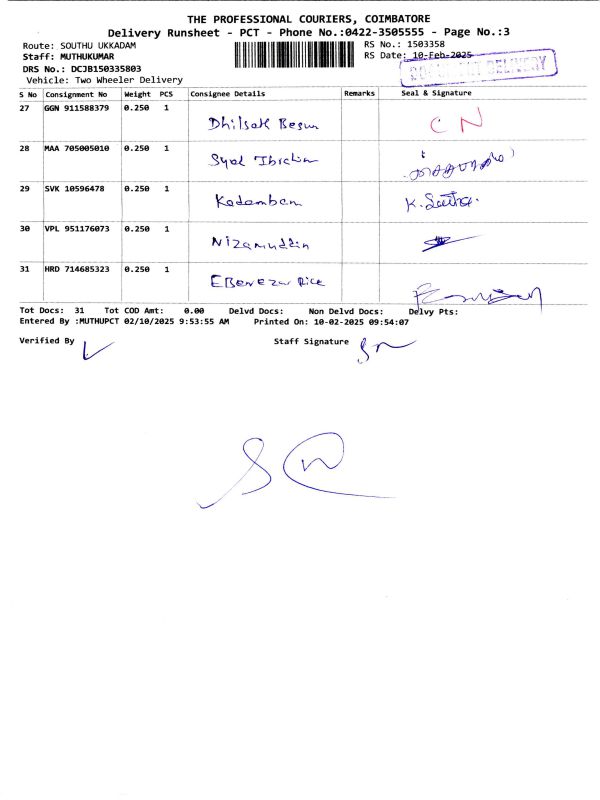 THE PROFESSIONAL COURIERS, COIMBATORE
Delivery Runsheet - PCT - Phone No.:0422-3505555 - Page No.:3
Route: SOUTHU UKKADAM RS No.: 1503358
Staff: MUTHUKUMAR RS Date: 10-Feb-2025
DRS No.: DCJB150335803 DOCUMENT DELIVERY
Vehicle: Two Wheeler Delivery
S No Consignment No Weight PCS Consignee Details Remarks Seal & Signature
27 GGN 911588379 0.250 1
Dhilsak Begum CN
28 MAA 705005010 0.250 1
Syed Ibrahim
29 SVK 10596478 0.250 1
Kadambam K.
30 VPL 951176073 0.250 1
Nizamuddin
31 HRD 714685323 0.250 1
Ebenezer Rice
Tot Docs: 31 Tot COD Amt: 0.00 Delvd Docs: Non Delvd Docs: Delvy Pts:
Entered By :MUTHUPCT 02/10/2025 9:53:55 AM Printed On: 10-02-2025 09:54:07
Verified By Staff Signature